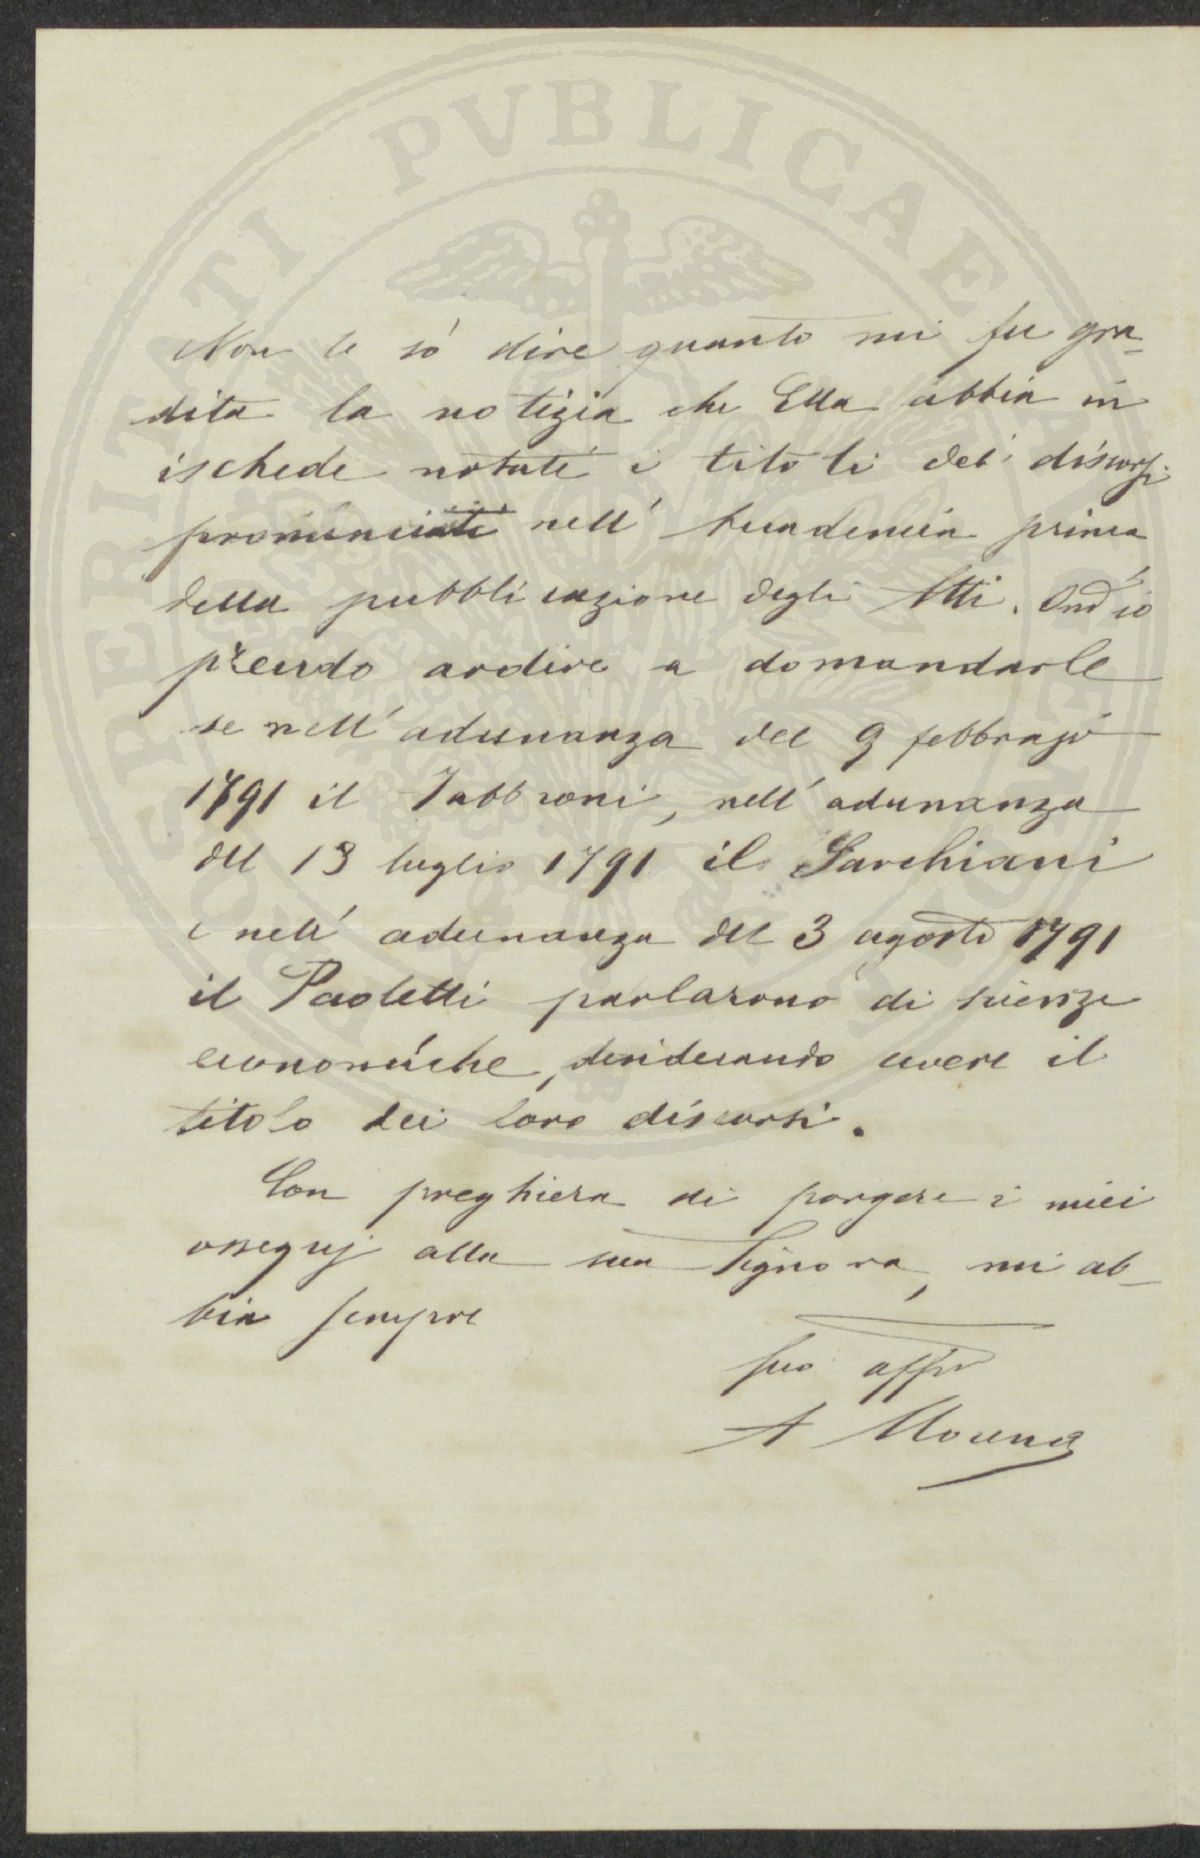 PROSPERITATI PVBLICAE
Non le sò dire quanto mi fu gra-
dita la notizia che Ella abbia in
ischede notati i titoli dei discorsi
pronunciati nell' Accademia prima
della pubblicazione degli Atti. Ond'io
prendo ardire a domandarle
se nell' adunanza del 9 febbrajo
1791 il Fabbroni, nell' adunanza
del 13 luglio 1791 il Sarchiani
e nell' adunanza del 3 agosto 1791
il Paoletti parlarono di scienze
economiche, desiderando avere il
titolo dei loro discorsi.
Con preghiera di porgere i miei
ossequj alla sua Signora, mi ab-
bia sempre
suo affmo
A